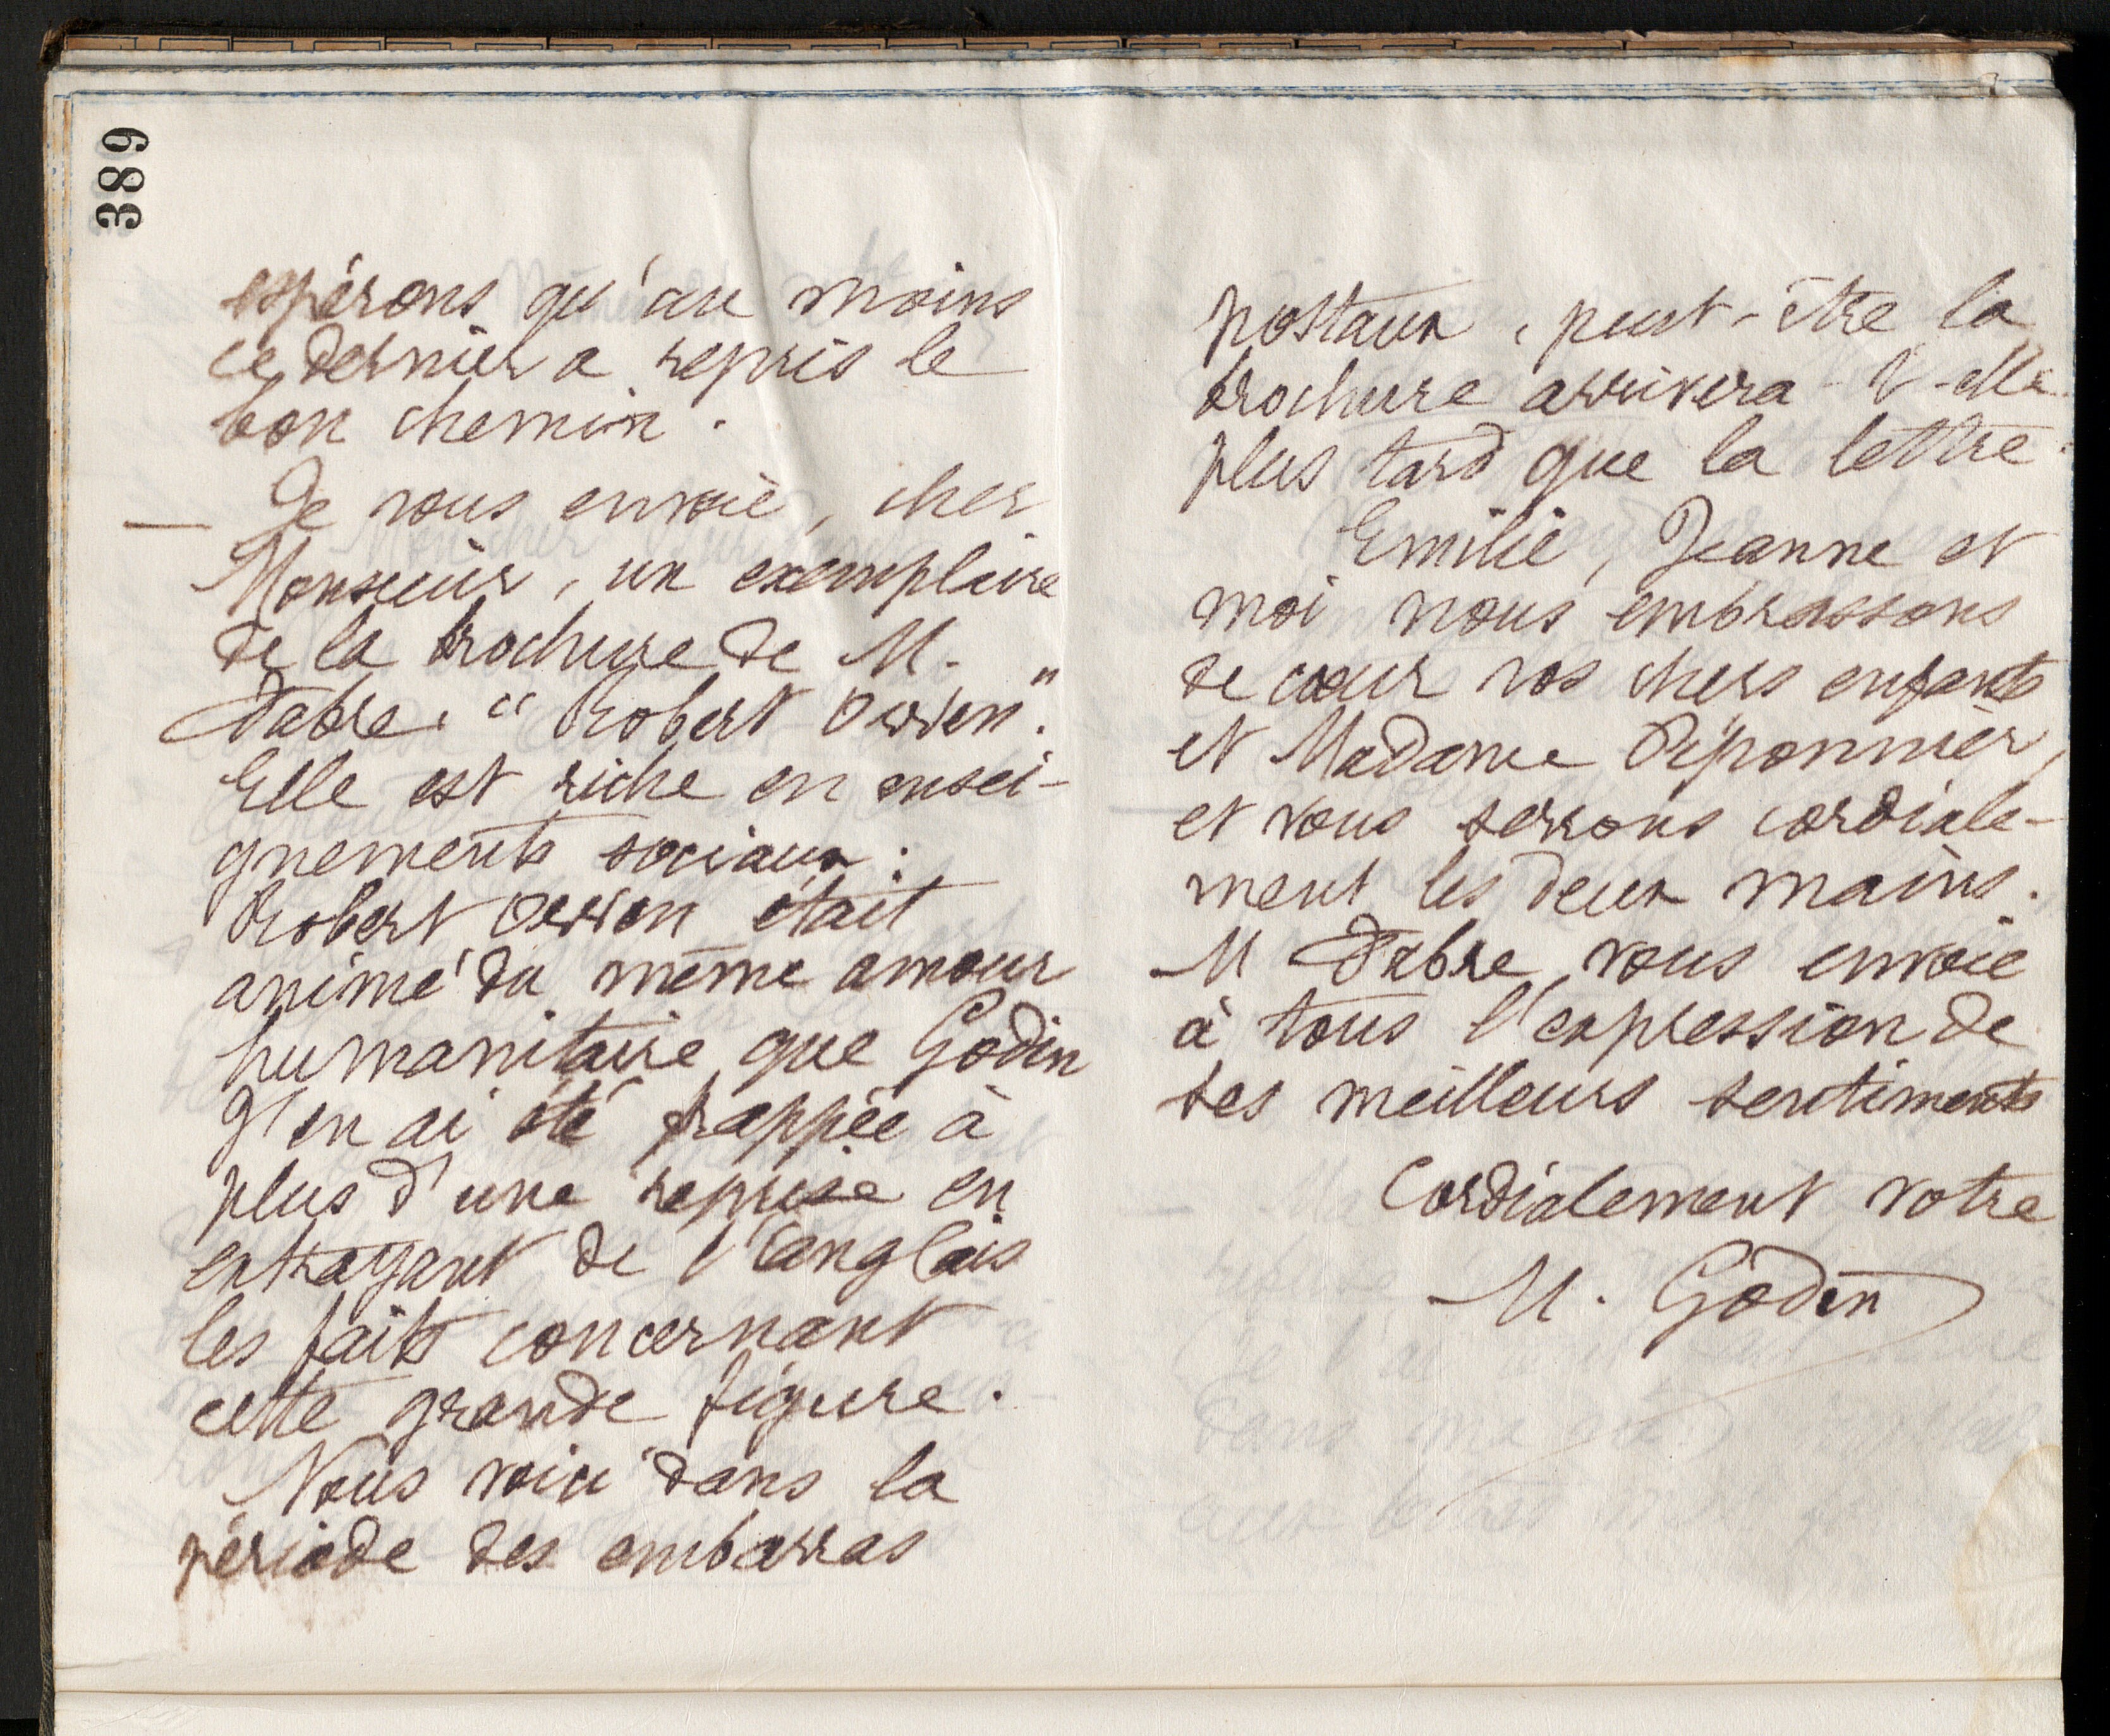 389
espérons qu'au moins
ce dernier a repris le
bon chemin.
— Je vous envoie, cher
Monsieur, un exemplaire
de la brochure de M.
Fabre, "Robert Owen".
Elle est riche en ensei-
gnements sociaux.
Robert Owen était
animé du même amour
humanitaire que Godin
J'en ai été frappée à
plus d'une reprise en
extrayant de l'anglais
les faits concernant
cette grande figure.
Nous voici dans la
période des embarras
postaux, peut-être la
brochure arrivera-t-elle
plus tard que la lettre.
Emilie, Jeanne et
moi nous embrassons
de cœur vos chers enfants
et Madame Piponnier,
et vous serrons cordiale-
ment les deux mains.
M Fabre vous envoie
à tous l'expression de
ses meilleurs sentiments
Cordialement votre
M. Godin